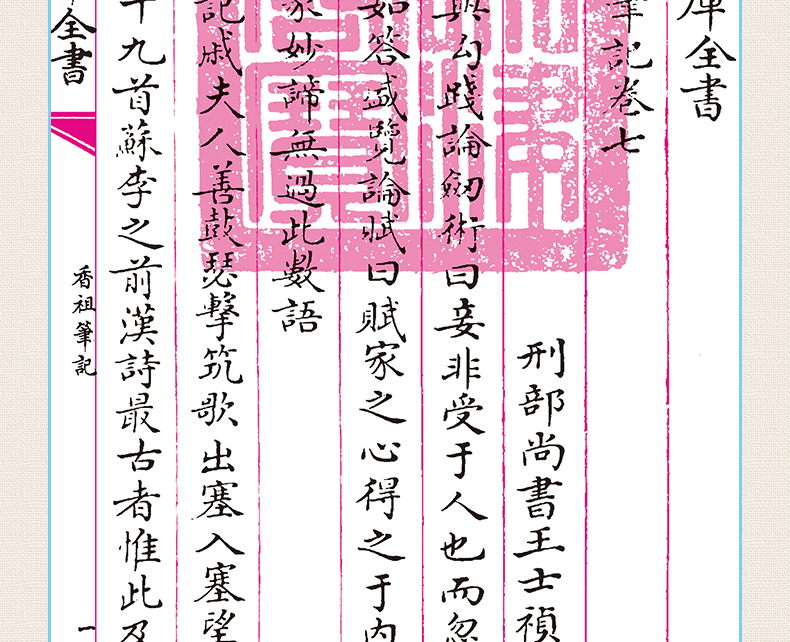 庫全書
筆記卷七
刑部尚書王士禎
與勾踐論劒術曰妾非受于人也而忽
如答盛覽論賦曰賦家之心得之于内
家妙諦無過此數語
記戚夫人善鼓瑟擊筑歌出塞入塞望
十九首蘇李之前漢詩最古者惟此及
全書
香祖筆記
一